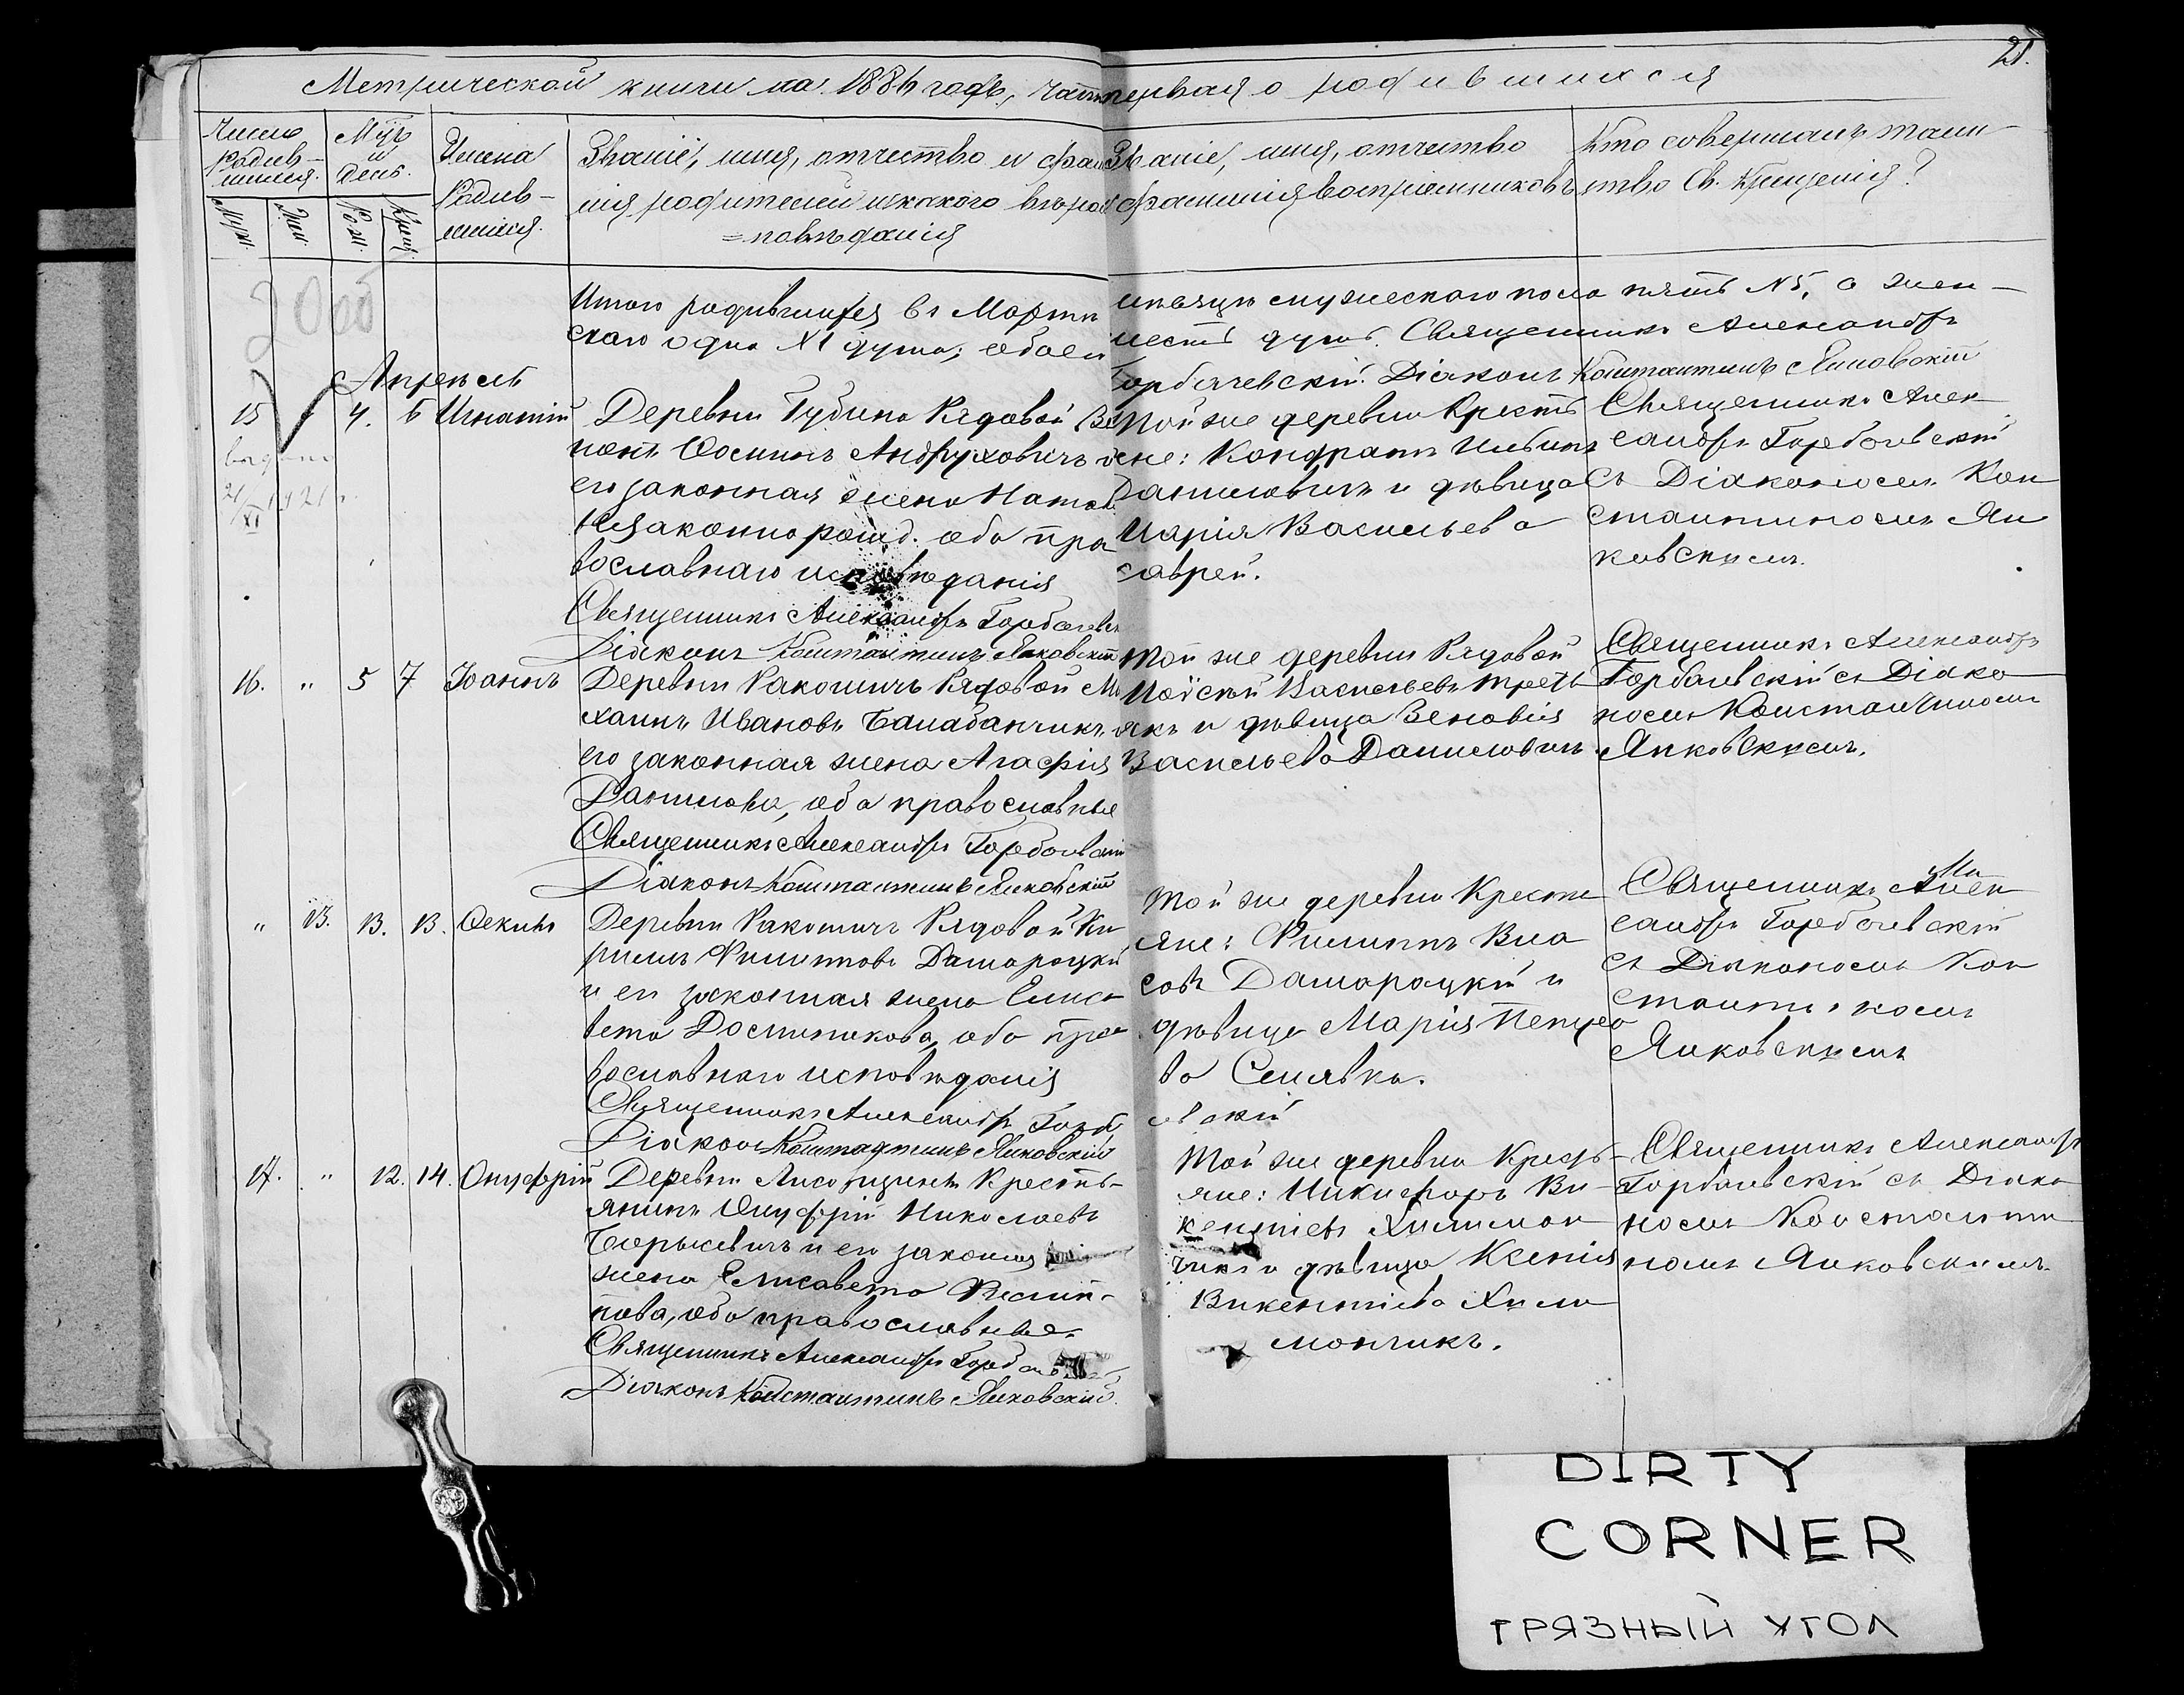 21.
Метрической книги на 1886 годъ, часть первая о родившихся
Число родившихся.
Муж.
Жен.
Мцъ и День.
Рож.
Крещ.
Имена Родившихся.
Званіе, имя, отчество и фами
лія родителей и какого вѣроис
=повѣданія
Званіе, имя, отчество
фамилія воспріемниковъ
Кто совершалъ таин-
ство Св. Крещенія?
Итого родившихся въ Мартѣ мѣсяцѣ мужескаго пола пять №5, а жен-
скаго одна №1 душа, обоего шесть душъ. Священникъ Александръ
Горбачевскій. Діаконъ Константинъ Янковскій
Апрель
15
4.
6
Игнатій
21/XI 1921 г.
Деревни Губина Рядовой
Осиповъ Андруховичъ и
его законная жена
Незаконнорожд. оба пра
вославнаго исповѣданія
Священникъ Александръ Горбачевск
Діаконъ Константинъ Янковскій
Той же деревни Крестья
не: Кондратъ Ильинъ
Даниловичъ и дѣвица
Марія Васильева
Священникъ Алек
сандръ Горбачевскій
съ Діакономъ Кон
стантиномъ Ян
ковскимъ.
16.
"
5
7
Іоаннъ
Деревни Ракошичъ Рядовой Ми
хаилъ Ивановъ Балабанчикъ и
его законная жена Агафія
Данилова, оба православные
Священникъ Александръ Горбачевскій
Діаконъ Константинъ Янковскій
Той же деревни Рядовой
Моѵсей Васильевъ Треть
якъ и дѣвица Зеновія
Васильева Даниловичъ.
Священникъ Александръ
Горбачевскій съ Діако
номъ Константиномъ
Янковскимъ.
"
13.
13.
13.
Ѳекла
Деревни Ракошичъ Рядовой Ки
риллъ Филипповъ Дашароцкій
и его законная жена Елиса
вета Доминикова, оба пра
вославнаго исповѣданія
Священникъ Александръ Горбач
евскій
Діаконъ Константинъ Янковскій
Той же деревни Крестья
яне: Филиппъ Вла
совъ Дашароцкій и
дѣвица Марія
ва Синявка.
Священникъ Алек
сандръ Горбачевскій
съ Діакономъ Кон
стантиномъ
Янковскимъ
17.
"
12.
14.
Онуфрій
Деревни Лисощицъ Кресть-
янинъ Онуфрій Николаевъ
Борысевичъ и его законная
жена Елисавета Филип-
пова, оба православные.
Священникъ Александръ Горбачевскій
Діаконъ Константинъ Янковскій.
Той же деревни Кресть-
яне: Никифоръ Ви-
кентіевъ Хилимон
чикъ и дѣвица Ксенія
Викентіева Хили
мончикъ.
Священникъ Александръ
Горбачевскій съ Діако
номъ Константи
номъ Янковскимъ.
DIRTY
CORNER
ГРЯЗНЫЙ УГОЛ